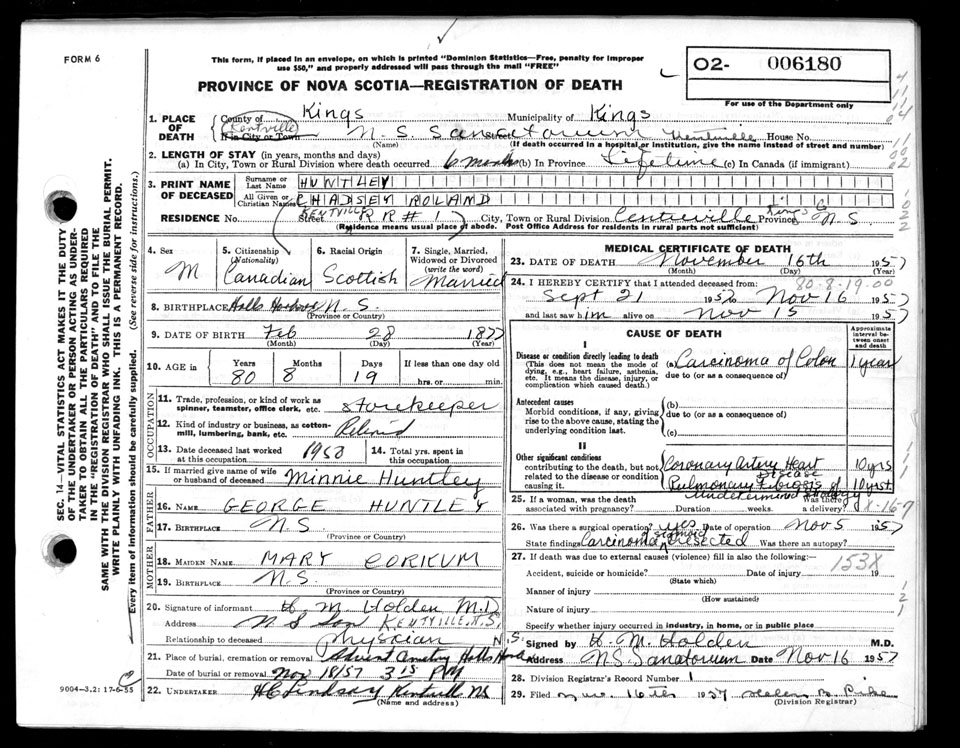 FORM 6
This form, if placed in an envelope, on which is printed "Dominion Statistics—Free, penalty for improper
use $50," and properly addressed will pass through the mail "FREE"
O2- 006180
PROVINCE OF NOVA SCOTIA—REGISTRATION OF DEATH
For use of the Department only
1. PLACE OF DEATH
County of Kings Municipality of Kings
If in City or Town Kentville N. S. Sanatorium Kentville House No.
(Name) (If death occurred in a hospital or institution, give the name instead of street and number)
2. LENGTH OF STAY (in years, months and days)
(a) In City, Town or Rural Division where death occurred 6 months (b) In Province Lifetime (c) In Canada (if immigrant)
3. PRINT NAME OF DECEASED
Surname or Last Name HUNTLEY
All Given or Christian Names CHADSEY ROLAND
RESIDENCE No. Street KENTVILLE RR # 1 City, Town or Rural Division Centreville Kings Province N S
(Residence means usual place of abode. Post Office Address for residents in rural parts not sufficient)
4. Sex
M
5. Citizenship (Nationality)
Canadian
6. Racial Origin
Scottish
7. Single, Married, Widowed or Divorced (write the word)
Married
8. BIRTHPLACE Halls Harbour N. S.
(Province or Country)
9. DATE OF BIRTH Feb 28 1877
(Month) (Day) (Year)
10. AGE in
Years Months Days If less than one day old
80 8 19 hrs. or min.
OCCUPATION
11. Trade, profession, or kind of work as spinner, teamster, office clerk, etc. storekeeper
12. Kind of industry or business, as cotton-mill, lumbering, bank, etc. Retired
13. Date deceased last worked at this occupation 1950
14. Total yrs. spent in this occupation
15. If married give name of wife or husband of deceased Minnie Huntley
FATHER
16. NAME GEORGE HUNTLEY
17. BIRTHPLACE N.S.
(Province or Country)
MOTHER
18. MAIDEN NAME MARY CORKUM
19. BIRTHPLACE N.S.
(Province or Country)
20. Signature of informant H. M. Holden M.D
Address N S San KENTVILLE N.S.
Relationship to deceased Physcian
21. Place of burial, cremation or removal Advent Cemetery Halls Harbor N.S.
Date of burial or removal Nov 18/57 3 15 PM
22. UNDERTAKER Lindsay Kentville NS
(Name and address)
MEDICAL CERTIFICATE OF DEATH
23. DATE OF DEATH November 16th 1957
(Month) (Day) (Year)
80-8-19-00
24. I HEREBY CERTIFY that I attended deceased from:
Sept 21 1957 to Nov 16 1957
and last saw him alive on Nov 15 1957
CAUSE OF DEATH
Approximate interval between onset and death
I
Disease or condition directly leading to death
(This does not mean the mode of dying, e.g., heart failure, asthenia, etc. It means the disease, injury, or complication which caused death.)
(a) Carcinoma of Colon 1 year
due to (or as a consequence of)
Antecedent causes
Morbid conditions, if any, giving rise to the above cause, stating the underlying condition last.
(b)
due to (or as a consequence of)
(c)
II
Other significant conditions
contributing to the death, but not related to the disease or condition causing it.
Coronary Artery Heart Disease 10 yrs
Pulmonary Fibrosis of undetermined etiology 10 yrs
25. If a woman, was the death Was there
associated with pregnancy? Duration weeks. a delivery?
26. Was there a surgical operation? yes Date of operation Nov 5 1957
State findings Carcinoma sigmoid resected Was there an autopsy?
27. If death was due to external causes (violence) fill in also the following:—
153X
Accident, suicide or homicide? Date of injury 19
(State which)
Manner of injury
(How sustained)
Nature of injury
Specify whether injury occurred in industry, in home, or in public place
Signed by H. M. Holden M.D.
Address NS Sanatorium Date Nov 16 1957
28. Division Registrar's Record Number 1
29. Filed 16th 1957 Helen B. Pike
(Division Registrar)
SEC. 14—VITAL STATISTICS ACT MAKES IT THE DUTY
OF THE UNDERTAKER OR PERSON ACTING AS UNDER-
TAKER TO OBTAIN ALL THE PARTICULARS REQUIRED
IN THE "REGISTRATION OF DEATH" AND TO FILE THE
SAME WITH THE DIVISION REGISTRAR WHO SHALL ISSUE THE BURIAL PERMIT.
WRITE PLAINLY WITH UNFADING INK. THIS IS A PERMANENT RECORD.
Every item of information should be carefully supplied. (See reverse side for instructions.)
9004-3.2: 17-6-55